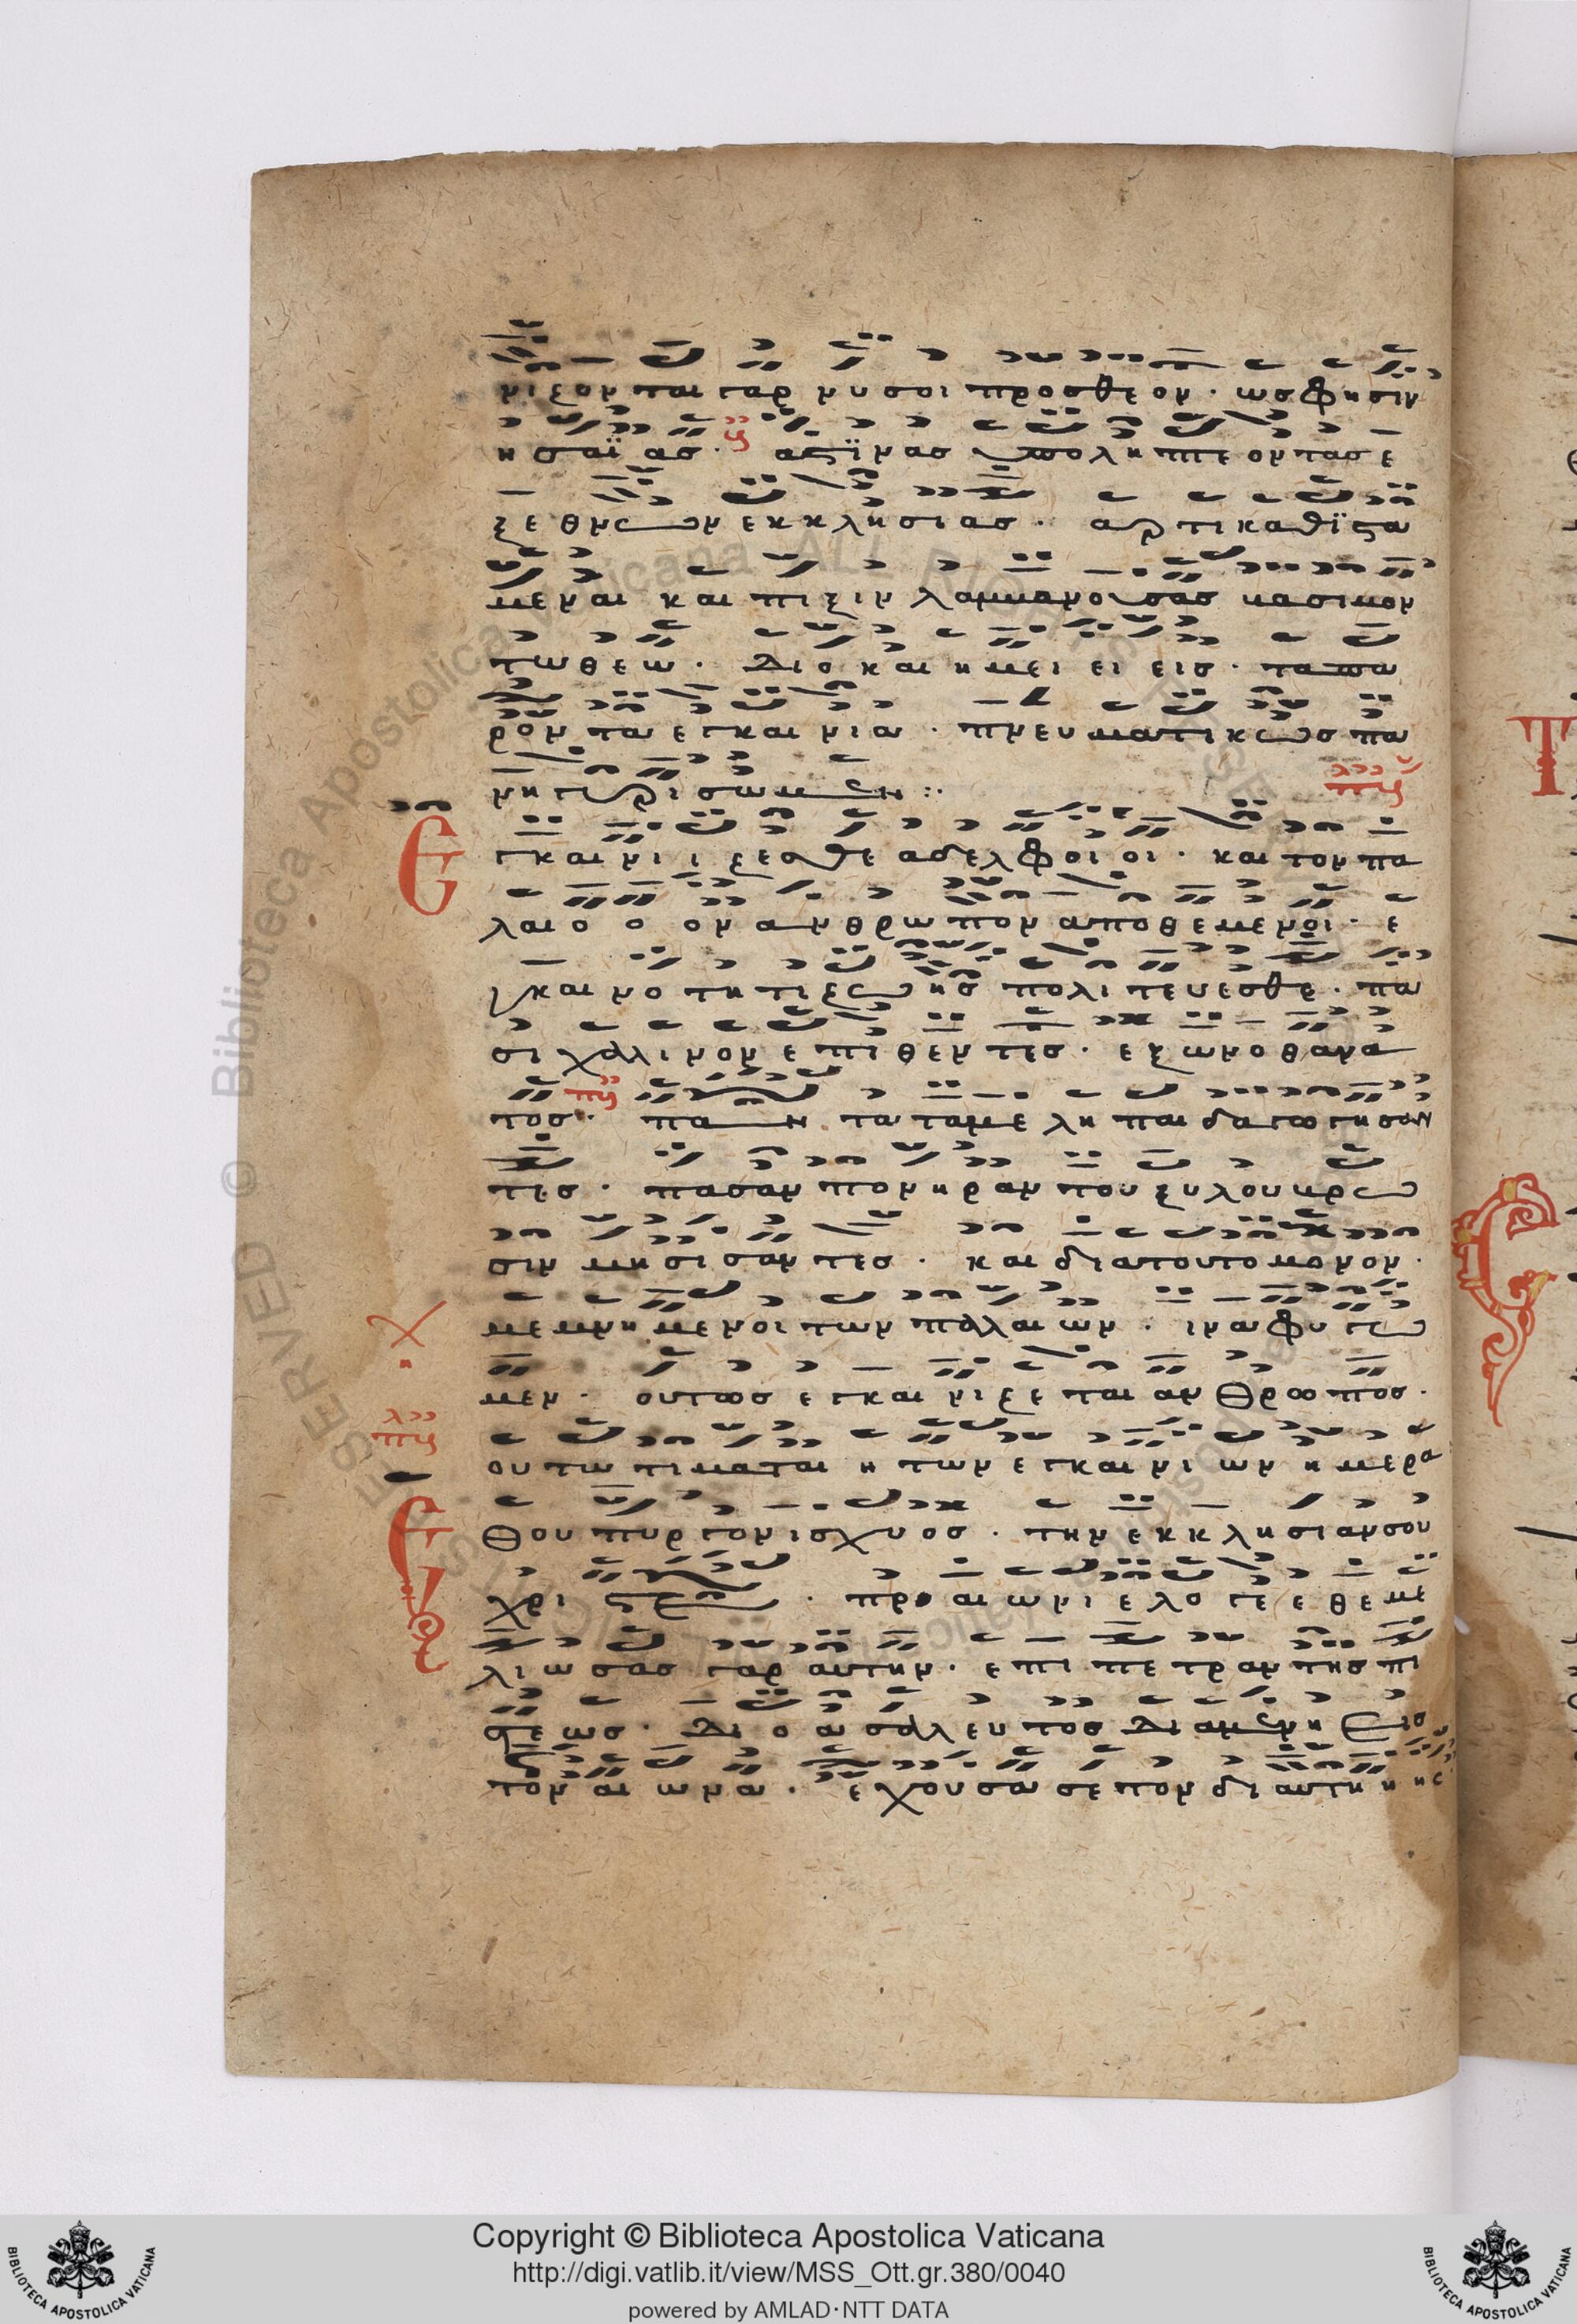 νιζονται γαρ νυσοι προσθεον · ωσ φησιν
ησαϊασ · ασ νησασ υπολη πτεον τασ ε
ξ εθνων εκκλησιασ · αρτι καθϊστα
μεναι και πιξιν λαμμανουσασ βασιμον
τω θεω · διο και ημει ει εισ · τα πα
ροντα εγκαινια · πνευματικωσ πα
νηγυρισωμεν :·
Ε
γκαινι ι ζεσθε αδελφοι οι · και τον πα
λαιο ο ον ανθρωπον αποθεμενοι · ε
ν και νο τητι ζωησ πολιτευεσθε · πα
σι χαλινον επιθεντεσ · εξ ων ο θανα
τοσ · παν τα τα με λη παιδαγωγησαν
τεσ · πασαν πονηραν του ξυλου βρω
σιν μησι σαντεσ · και δια τουτο μονον ·
μεμνημενοι των παλαιων · ινα φυ γω
μεν · ουτωσ εγκαινιζεται ανθρωποσ ·
ουτω τιμαται η των εγκαινι ων ημερα
Επι
θου πυργον ισχυοσ · την εκκλησιαν σου
χριστε · προ αιωνι ε λογε εθεμε
λιωσασ γαρ αυτην · επι πετραν τησ πι
στεωσ · διο ασαλευτοσ διαμενη εισ
τον αιωνα · εχουσα σε τον δι αυτη η ησ
Copyright © Biblioteca Apostolica Vaticana
http://digi.vatlib.it/view/MSS_Ott.gr.380/0040
powered by AMLAD·NTT DATA
BIBLIOTECA APOSTOLICA VATICANA
BIBLIOTECA APOSTOLICA VATICANA